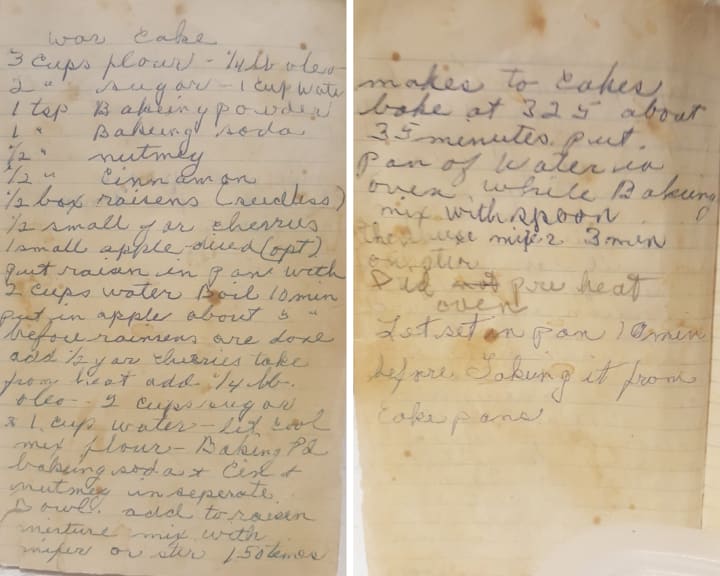 war cake
3 cups flour - 1/4 lb oleo
2 " sugar - 1 cup wate
1 tsp Bakeing powder
1 " Bakeing soda
1/2 " nutmeg
1/2 " Cinnamon
1/2 box raisens (seedless)
1/2 small jar cherries
1 small apple-diced (opt)
put raisin in pan with
2 cups water Boil 10 min
put in apple about 5 "
before raisens are done
add 1/2 jar cherries take
from heat add 1/4 lb.
oleo - 2 cups sugar
+ 1 cup water - let cool
mix flour - Baking Pd
bakeing soda + Cin +
nutmeg in seperate
Bowl. add to raisen
mixture mix with
mixer or stir 150 times
makes to cakes
bake at 325 about
35 minutes put
pan of Water in
oven while Bakeing
mix with spoon
then use mixer 3 min
on stir
Did not pre heat
oven
Let set in pan 10 min
before Taking it from
Cake pans